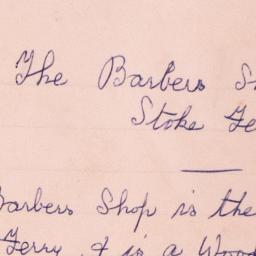 The Barbers S
Stoke Fe
Barbers Shop is the
Ferry & is a Wood